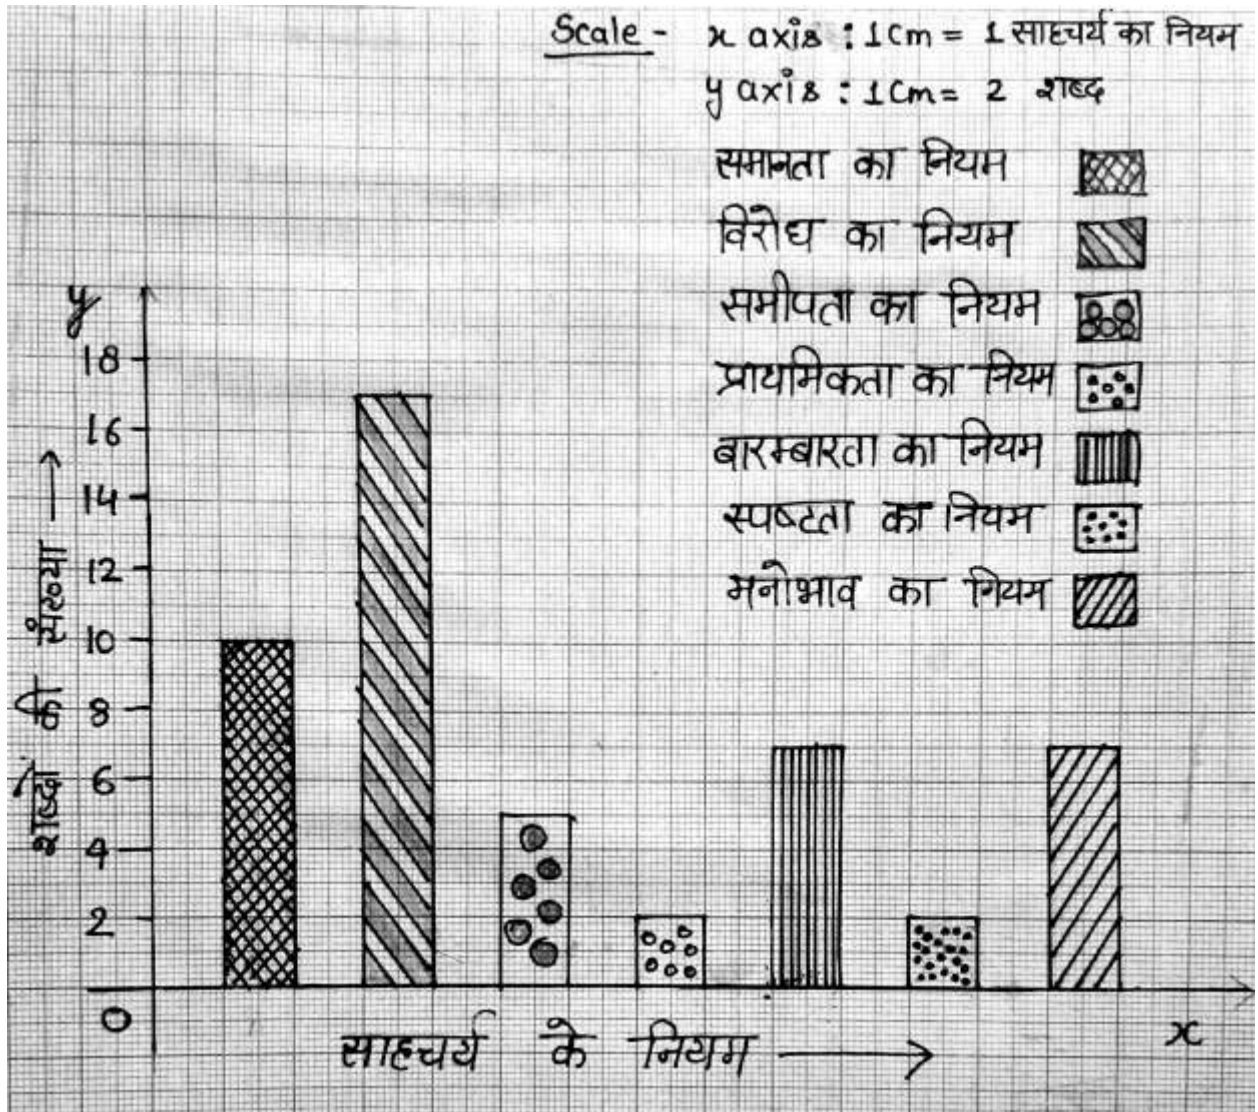 Scale - x axis : 1 Cm = 1 साहचर्य का नियम
y axis : 1 Cm = 2 शब्द
समानता का नियम
विरोध का नियम
समीपता का नियम
प्राथमिकता का नियम
बारम्बारता का नियम
स्पष्टता का नियम
मनोभाव का नियम
y
18
16
14
12
10
8
6
4
2
0
शब्दों की संख्या
साहचर्य के नियम
x